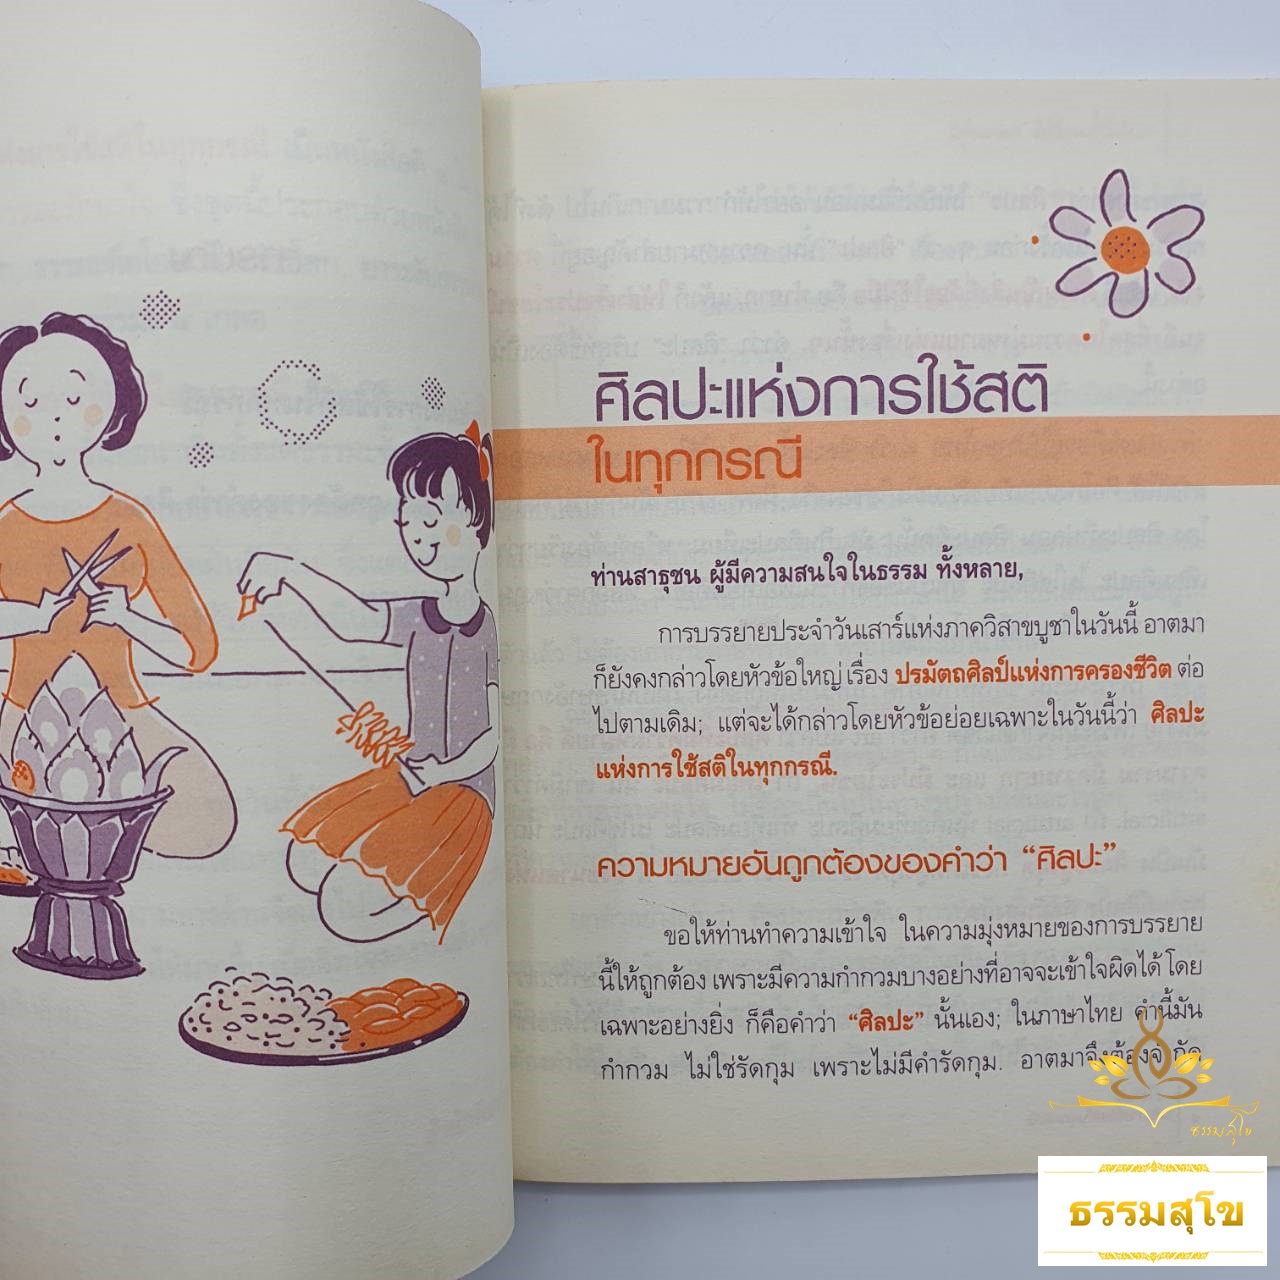 ศิลปะแห่งการใช้สติ
ในทุกกรณี
ท่านสาธุชน ผู้มีความสนใจในธรรม ทั้งหลาย,
การบรรยายประจำวันเสาร์แห่งภาควิสาขบูชาในวันนี้ อาตมา
ก็ยังคงกล่าวโดยหัวข้อใหญ่ เรื่อง ปรมัตถศิลป์แห่งการครองชีวิต ต่อ
ไปตามเดิม; แต่จะได้กล่าวโดยหัวข้อย่อยเฉพาะในวันนี้ว่า ศิลปะ
แห่งการใช้สติในทุกกรณี.
ความหมายอันถูกต้องของคำว่า “ศิลปะ”
ขอให้ท่านทำความเข้าใจ ในความมุ่งหมายของการบรรยาย
นี้ให้ถูกต้อง เพราะมีความกำกวมบางอย่างที่อาจจะเข้าใจผิดได้ โดย
เฉพาะอย่างยิ่ง ก็คือคำว่า “ศิลปะ” นั้นเอง; ในภาษาไทย คำนี้มัน
กำกวม ไม่ใช่รัดกุม เพราะไม่มีคำรัดกุม. อาตมาจึงต้องจำกัด
ธรรมสุโข
ธรรมสุโข